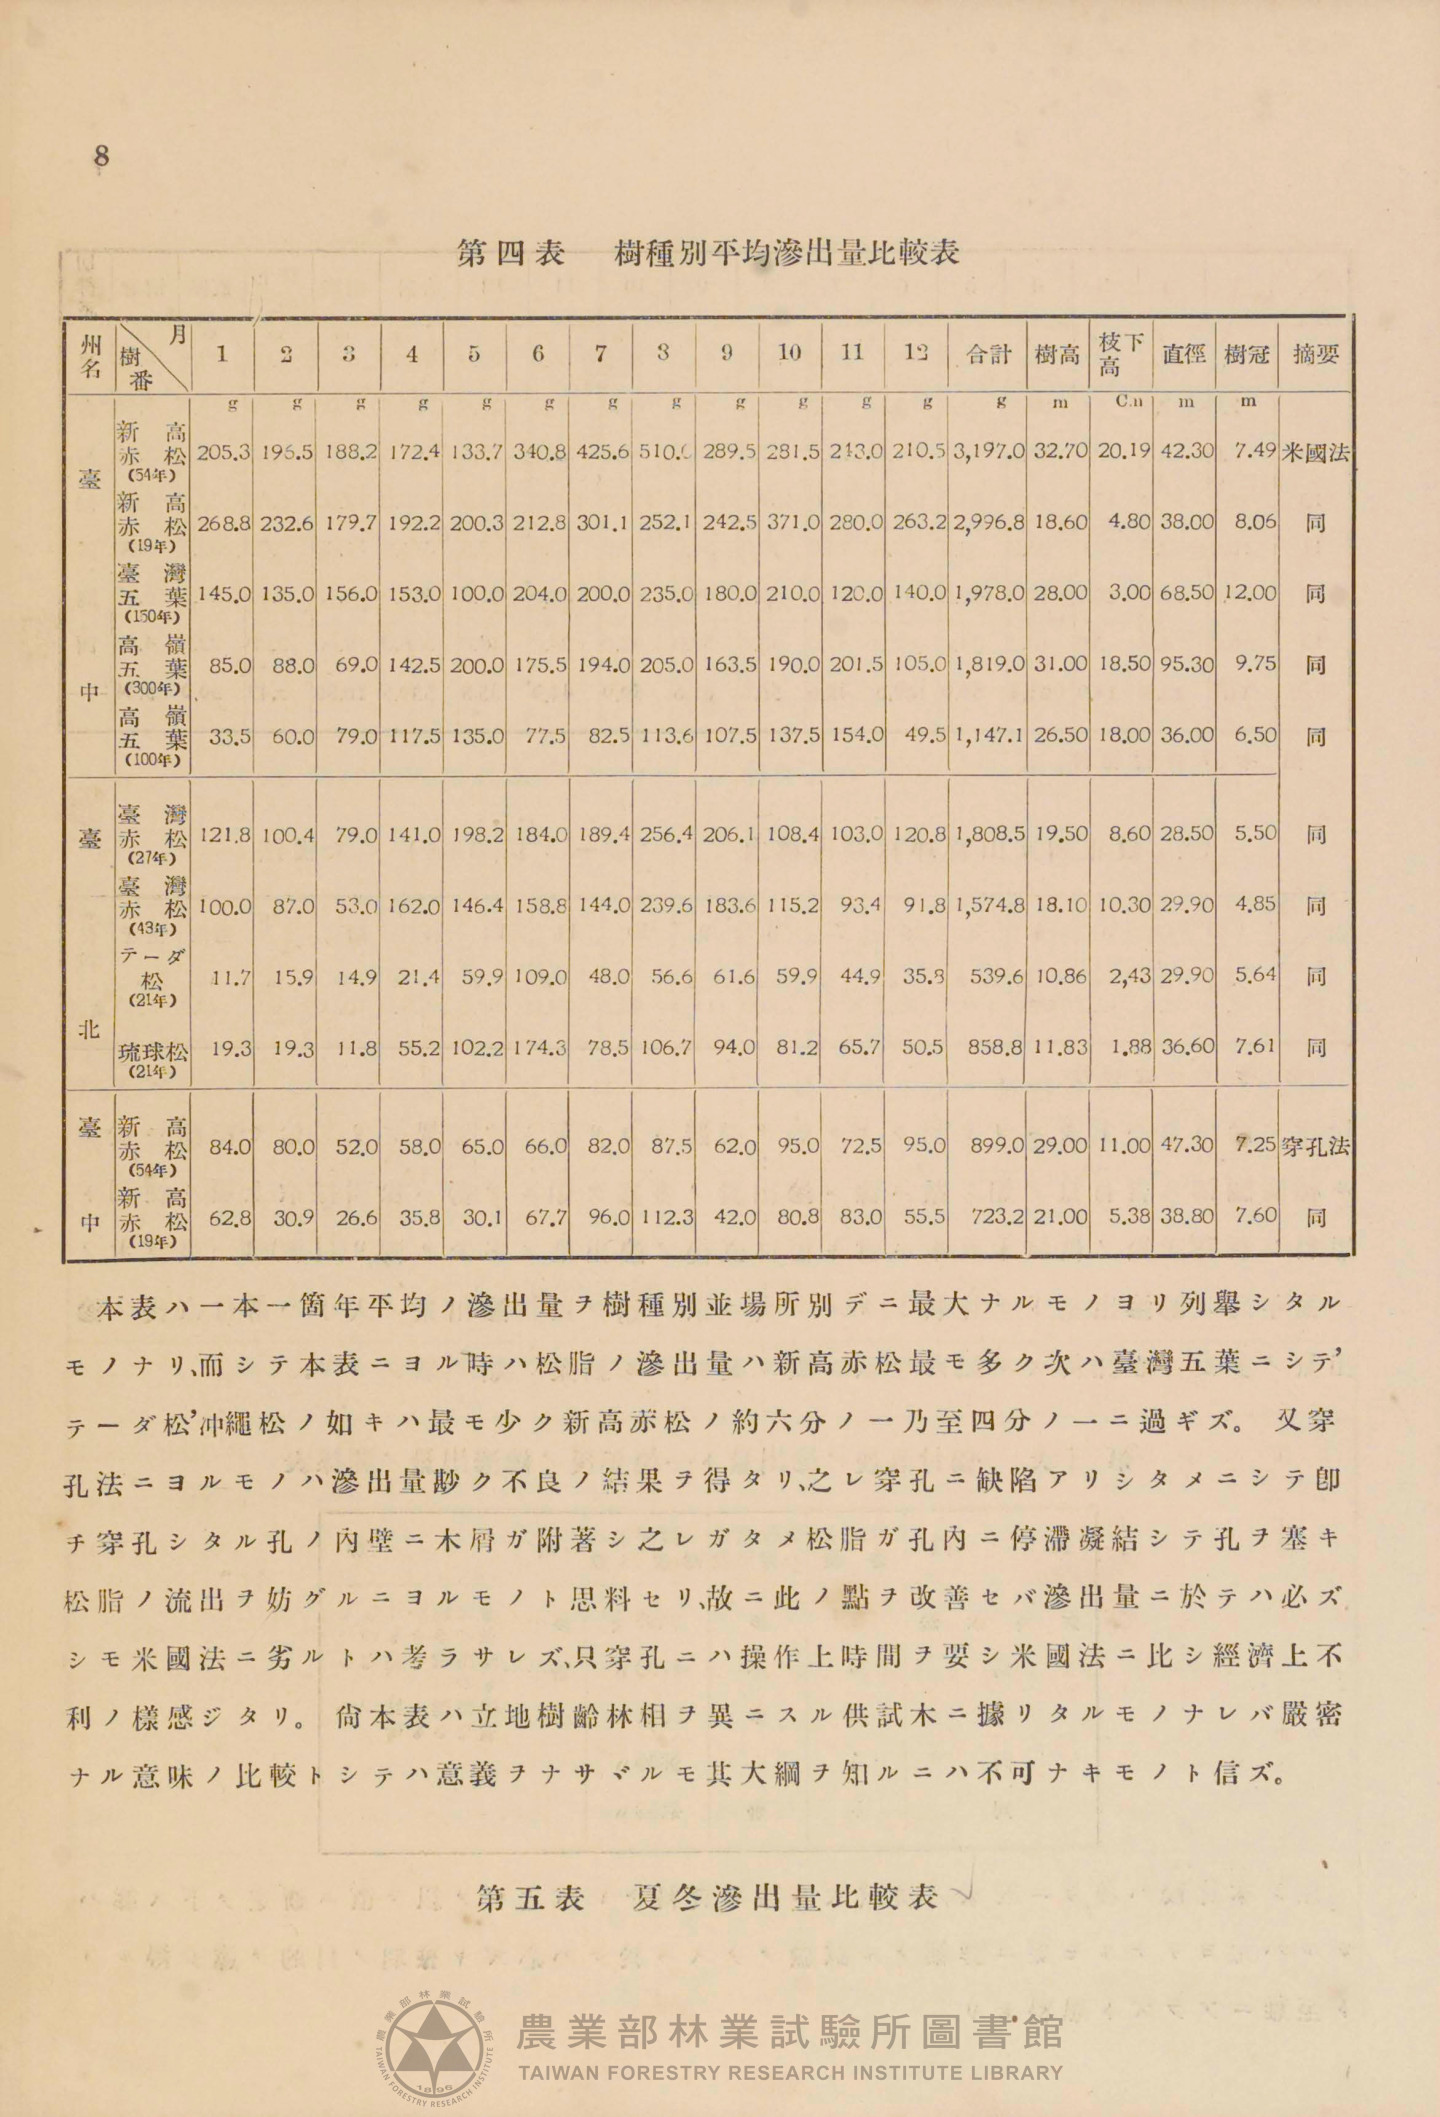 8
第四表 樹種別平均滲出量比較表
州名 樹番 月 1 2 3 4 5 6 7 8 9 10 11 12 合計 樹高 枝下高 直徑 樹冠 摘要
g g g g g g g g g g g g g m C.m m m
臺中
新高赤松(54年) 205.3 196.5 188.2 172.4 133.7 340.8 425.6 510.0 289.5 281.5 243.0 210.5 3,197.0 32.70 20.19 42.30 7.49 米國法
新高赤松(19年) 268.8 232.6 179.7 192.2 200.3 212.8 301.1 252.1 242.5 371.0 280.0 263.2 2,996.8 18.60 4.80 38.00 8.06 同
臺灣五葉(150年) 145.0 135.0 156.0 153.0 100.0 204.0 200.0 235.0 180.0 210.0 120.0 140.0 1,978.0 28.00 3.00 68.50 12.00 同
高嶺五葉(300年) 85.0 88.0 69.0 142.5 200.0 175.5 194.0 205.0 163.5 190.0 201.5 105.0 1,819.0 31.00 18.50 95.30 9.75 同
高嶺五葉(100年) 33.5 60.0 79.0 117.5 135.0 77.5 82.5 113.6 107.5 137.5 154.0 49.5 1,147.1 26.50 18.00 36.00 6.50 同
臺北
臺灣赤松(27年) 121.8 100.4 79.0 141.0 198.2 184.0 189.4 256.4 206.1 108.4 103.0 120.8 1,808.5 19.50 8.60 28.50 5.50 同
臺灣赤松(43年) 100.0 87.0 53.0 162.0 146.4 158.8 144.0 239.6 183.6 115.2 93.4 91.8 1,574.8 18.10 10.30 29.90 4.85 同
テーダ松(21年) 11.7 15.9 14.9 21.4 59.9 109.0 48.0 56.6 61.6 59.9 44.9 35.8 539.6 10.86 2,43 29.90 5.64 同
琉球松(21年) 19.3 19.3 11.8 55.2 102.2 174.3 78.5 106.7 94.0 81.2 65.7 50.5 858.8 11.83 1.88 36.60 7.61 同
臺中
新高赤松(54年) 84.0 80.0 52.0 58.0 65.0 66.0 82.0 87.5 62.0 95.0 72.5 95.0 899.0 29.00 11.00 47.30 7.25 穿孔法
新高赤松(19年) 62.8 30.9 26.6 35.8 30.1 67.7 96.0 112.3 42.0 80.8 83.0 55.5 723.2 21.00 5.38 38.80 7.60 同
本表ハ一本一箇年平均ノ滲出量ヲ樹種別並場所別デニ最大ナルモノヨリ列擧シタル
モノナリ、而シテ本表ニヨル時ハ松脂ノ滲出量ハ新高赤松最モ多ク次ハ臺灣五葉ニシテ’
テーダ松’冲繩松ノ如キハ最モ少ク新高赤松ノ約六分ノ一乃至四分ノ一ニ過ギズ。 又穿
孔法ニヨルモノハ滲出量尠ク不良ノ結果ヲ得タリ、之レ穿孔ニ缺陷アリシタメニシテ卽
チ穿孔シタル孔ノ內壁ニ木屑ガ附著シ之レガタメ松脂ガ孔內ニ停滯凝結シテ孔ヲ塞キ
松脂ノ流出ヲ妨グルニヨルモノト思料セリ、故ニ此ノ點ヲ改善セバ滲出量ニ於テハ必ズ
シモ米國法ニ劣ルトハ考ラサレズ、只穿孔ニハ操作上時間ヲ要シ米國法ニ比シ經濟上不
利ノ樣感ジタリ。 尙本表ハ立地樹齡林相ヲ異ニスル供試木ニ據リタルモノナレバ嚴密
ナル意味ノ比較トシテハ意義ヲナサヾルモ其大綱ヲ知ルニハ不可ナキモノト信ズ。
第五表 夏冬滲出量比較表
農業部林業試驗所圖書館
TAIWAN FORESTRY RESEARCH INSTITUTE LIBRARY
農業部林業試驗所
TAIWAN FORESTRY RESEARCH INSTITUTE
1895